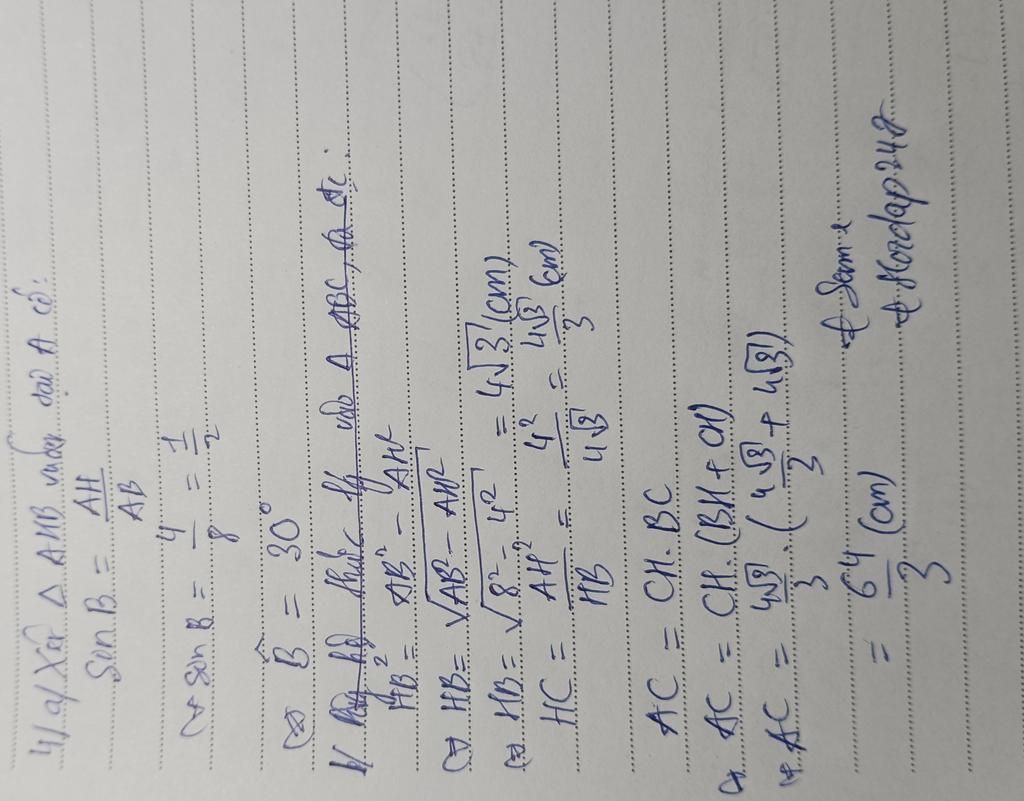 4/ a/ Xét Δ AHB vuông tại A có:
Sin B = AH/AB
(=) Sin B = 4/8 = 1/2
(=) B̂ = 30°
b/ Áp hệ thức lg vào Δ ABC, ta có:
HB² = AB² - AH²
(=) HB = √(AB² - AH²)
(=) HB = √(8² - 4²) = 4√3 (cm)
HC = AH²/HB = 4²/4√3 = 4√3/3 (cm)
AC = CH. BC
(=) AC = CH. (BH + CH)
(=) AC = 4√3/3 . (4√3/3 + 4√3)
= 64/3 (cm)